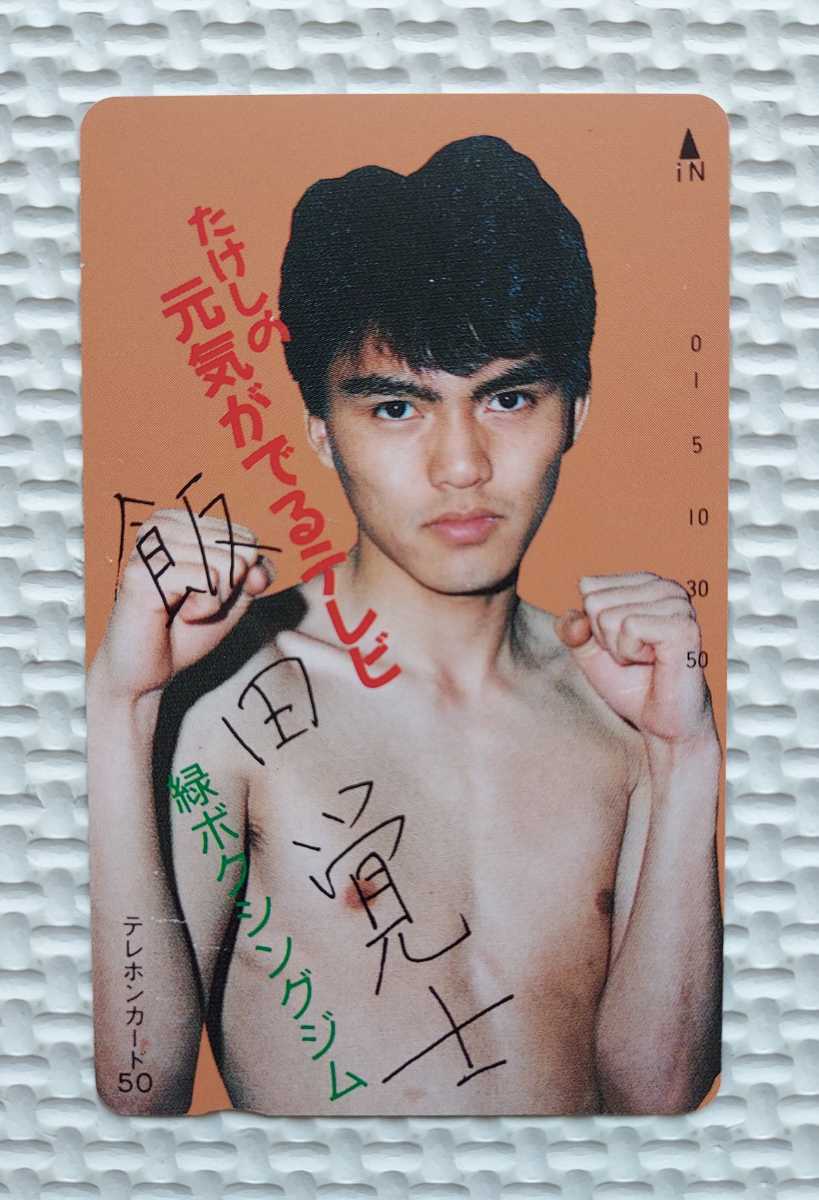 iN
たけしの
元気がでるテレビ
飯田覚士
緑ボクシングジム
0
1
5
10
30
50
テレホンカード
50